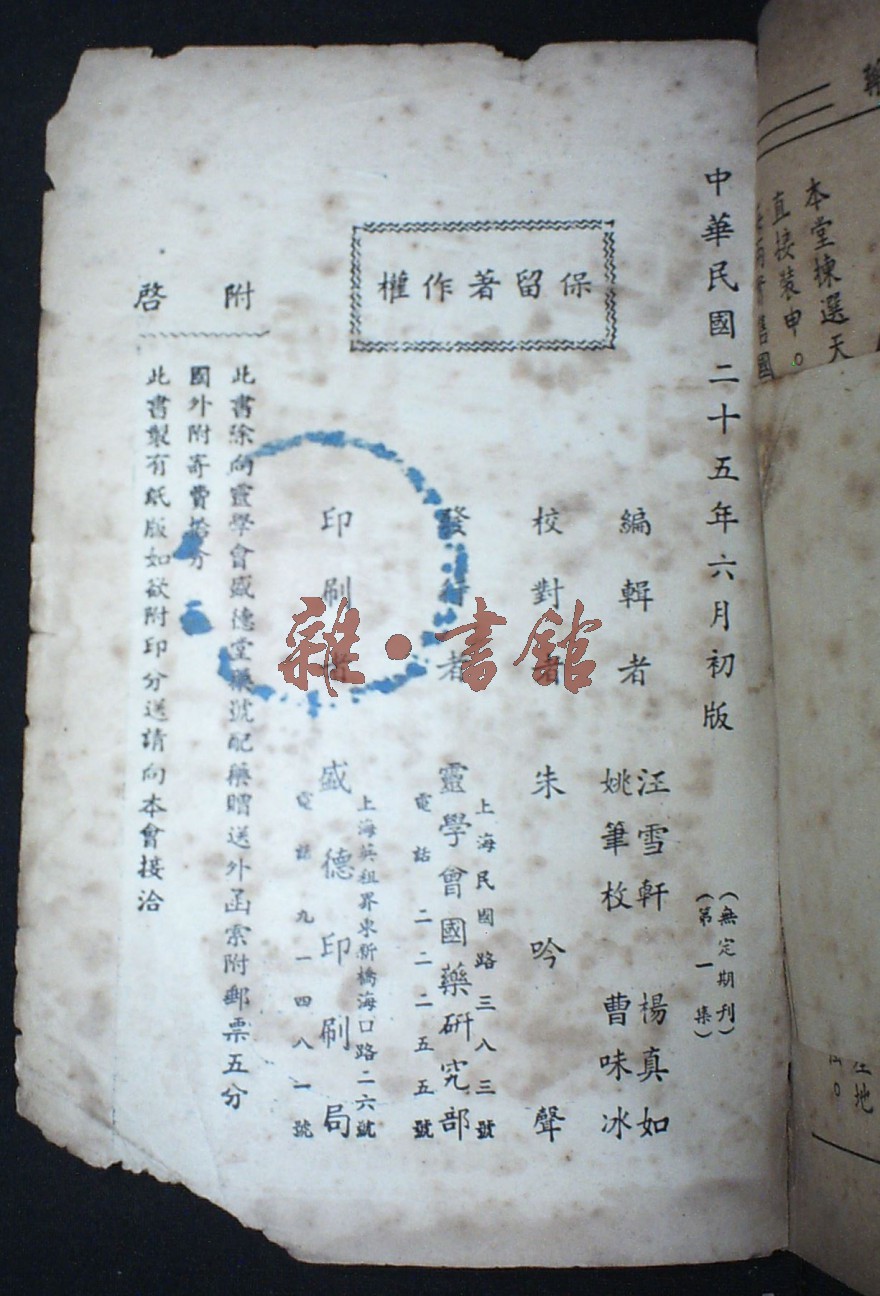 中華民國二十五年六月初版
(無定期刊)
(第一集)
編輯者
汪雪軒 楊真如
姚筆枚 曹味冰
校對者 朱吟聲
上海民國路三八三號
發行者 靈學會國藥研究部
電話二二二五五號
上海英租界東新橋海口路二六號
印刷者 盛德印刷局
電話九一四八一號
保留著作權
附啓
此書除向靈學會盛德堂藥號配藥贈送外函索附郵票五分
國外附寄費拾分
此書製有紙版如欲附印分送請向本會接洽
雜·書館
本堂揀選天
直接裝申。